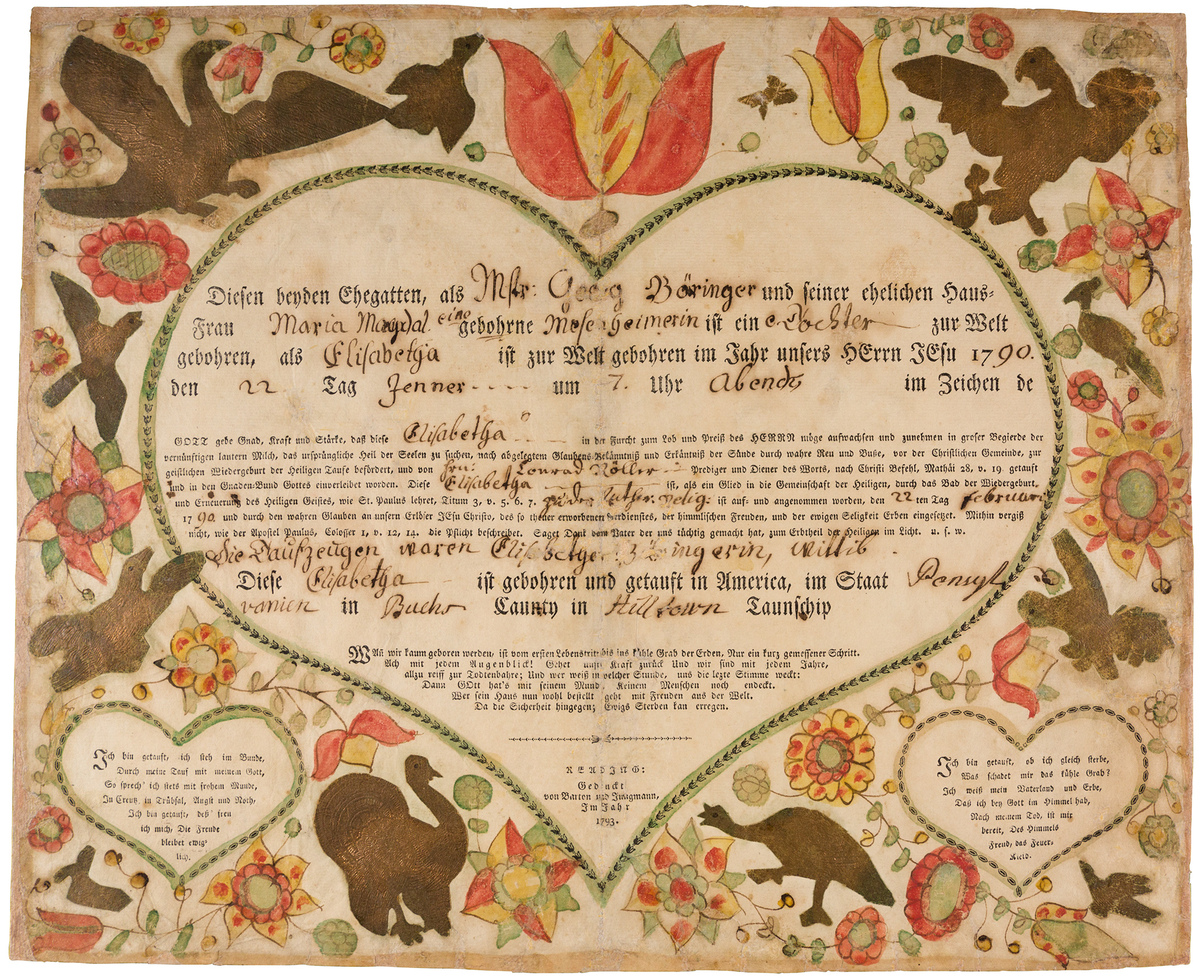 Diesen beyden Ehegatten, als Mstr: Georg Böringer und seiner ehelichen Haus-
Frau Maria Magdal. eine gebohrne Meserheimerin ist ein e Tochter zur Welt
gebohren, als Elisabetha ist zur Welt gebohren im Jahr unsers HErrn JEsu 1790.
den 22 Tag Jenner um 7. Uhr Abends im Zeichen de
GOTT gebe Gnad, Kraft und Stärke, daß diese Elisabetha in der Furcht zum Lob und Preiß des HERRN möge aufwachsen und zunehmen in groser Begierde der
vernünftigen lautern Milch, das ursprüngliche Heil der Seelen zu suchen, nach abgelegtem Glaubens-Bekäntniß und Erkäntniß der Sünde durch wahre Reu und Buße, vor der Christlichen Gemeinde, zur
geistlichen Wiedergeburt der Heiligen Taufe befördert, und von Hrn: Conrad Röller Prediger und Diener des Worts, nach Christi Befehl, Mathäi 28, v. 19. getauft
und in den Gnaden-Bund Gottes einverleibet worden. Diese Elisabetha ist, als ein Glied in die Gemeinschaft der Heiligen, durch das Bad der Wiedergeburt,
und Erneuerung des Heiligen Geistes, wie St. Paulus lehret, Titum 3, v. 5. 6. 7. zu der Luther. Relig: ist auf- und angenommen worden, den 22 ten Tag Februari
1790. und durch den wahren Glauben an unsern Erlöser JEsu Christo, des so theuer erworbenen Verdienstes, der himmlischen Freuden, und der ewigen Seligkeit Erben eingesetzt. Mithin vergiß
nicht, wie der Apostel Paulus, Colosser 1, v. 12, 14. die Pflicht beschreibet. Saget Dank dem Vater der uns tüchtig gemacht hat, zum Erbtheil der Heiligen im Licht. u. s. w.
Die Taufzeugen waren Elisabetha Böringerin, Wittib
Diese Elisabetha ist gebohren und getauft in America, im Staat Pensyl
vanien in Bucks Caunty in Hilltown Taunschip
Wañ wir kaum geboren werden, ist vom ersten Lebenstritt bis ins kühle Grab der Erden, Nur ein kurz gemessener Schritt.
Ach mit jedem Augenblick! Gehet unsre Kraft zurück Und wir sind mit jedem Jahre,
allzu reiff zur Todtenbahre; Und wer weiß in welcher Stunde, uns die lezte Stimme weckt:
Dann GOtt hat's mit seinem Mund, Keinem Menschen noch endeckt.
Wer sein Haus nun wohl bestellt geht mit Freuden aus der Welt.
Da die Sicherheit hingegen; Ewigs Sterben kan erregen.
READING:
Gedruckt
von Barton und Jungmann,
Im Jahr
1793.
Ich bin getauft, ich steh im Bunde,
Durch meine Tauf mit meinem Gott,
So sprech' ich stets mit frohem Munde,
In Creutz, in Trübsal, Angst und Noth,
Ich bin getauft, deß freu
ich mich, Die Freude
bleibet ewig-
lich.
Ich bin getauft, ob ich gleich sterbe,
Was schadet mir das kühle Grab?
Ich weiß mein Vaterland und Erbe,
Daß ich bey Gott im Himmel hab,
Nach meinem Tod, ist mir
bereit, Des Himmels
Freud, das Feuer-
Kleid.